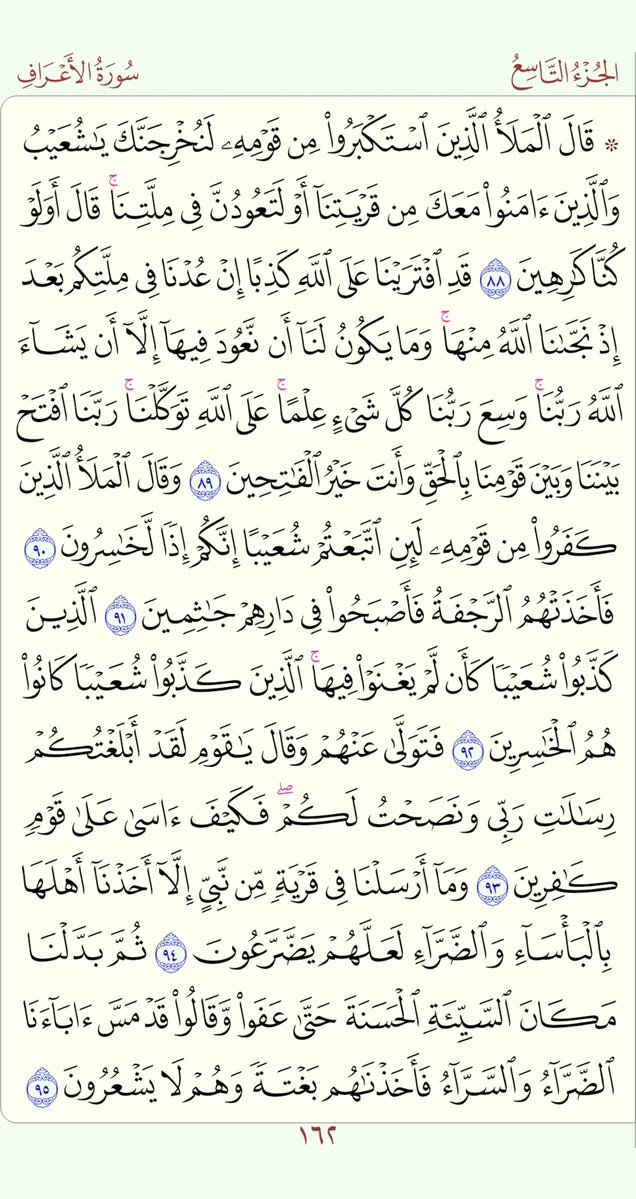 الجُزْءُ التَّاسِعُ
سُورَةُ الأَعْرَافِ
۞ قَالَ ٱلْمَلَأُ ٱلَّذِينَ ٱسْتَكْبَرُوا۟ مِن قَوْمِهِۦ لَنُخْرِجَنَّكَ يَـٰشُعَيْبُ
وَٱلَّذِينَ ءَامَنُوا۟ مَعَكَ مِن قَرْيَتِنَآ أَوْ لَتَعُودُنَّ فِى مِلَّتِنَا ۚ قَالَ أَوَلَوْ
كُنَّا كَـٰرِهِينَ ٨٨ قَدِ ٱفْتَرَيْنَا عَلَى ٱللَّهِ كَذِبًا إِنْ عُدْنَا فِى مِلَّتِكُم بَعْدَ
إِذْ نَجَّىٰنَا ٱللَّهُ مِنْهَا ۚ وَمَا يَكُونُ لَنَآ أَن نَّعُودَ فِيهَآ إِلَّآ أَن يَشَآءَ
ٱللَّهُ رَبُّنَا ۚ وَسِعَ رَبُّنَا كُلَّ شَىْءٍ عِلْمًا ۚ عَلَى ٱللَّهِ تَوَكَّلْنَا ۚ رَبَّنَا ٱفْتَحْ
بَيْنَنَا وَبَيْنَ قَوْمِنَا بِٱلْحَقِّ وَأَنتَ خَيْرُ ٱلْفَـٰتِحِينَ ٨٩ وَقَالَ ٱلْمَلَأُ ٱلَّذِينَ
كَفَرُوا۟ مِن قَوْمِهِۦ لَئِنِ ٱتَّبَعْتُمْ شُعَيْبًا إِنَّكُمْ إِذًا لَّخَـٰسِرُونَ ٩٠
فَأَخَذَتْهُمُ ٱلرَّجْفَةُ فَأَصْبَحُوا۟ فِى دَارِهِمْ جَـٰثِمِينَ ٩١ ٱلَّذِينَ
كَذَّبُوا۟ شُعَيْبًا كَأَن لَّمْ يَغْنَوْا۟ فِيهَا ۚ ٱلَّذِينَ كَذَّبُوا۟ شُعَيْبًا كَانُوا۟
هُمُ ٱلْخَـٰسِرِينَ ٩٢ فَتَوَلَّىٰ عَنْهُمْ وَقَالَ يَـٰقَوْمِ لَقَدْ أَبْلَغْتُكُمْ
رِسَـٰلَـٰتِ رَبِّى وَنَصَحْتُ لَكُمْ ۖ فَكَيْفَ ءَاسَىٰ عَلَىٰ قَوْمٍ
كَـٰفِرِينَ ٩٣ وَمَآ أَرْسَلْنَا فِى قَرْيَةٍ مِّن نَّبِىٍّ إِلَّآ أَخَذْنَآ أَهْلَهَا
بِٱلْبَأْسَآءِ وَٱلضَّرَّآءِ لَعَلَّهُمْ يَضَّرَّعُونَ ٩٤ ثُمَّ بَدَّلْنَا
مَكَانَ ٱلسَّيِّئَةِ ٱلْحَسَنَةَ حَتَّىٰ عَفَوا۟ وَّقَالُوا۟ قَدْ مَسَّ ءَابَآءَنَا
ٱلضَّرَّآءُ وَٱلسَّرَّآءُ فَأَخَذْنَـٰهُم بَغْتَةً وَهُمْ لَا يَشْعُرُونَ ٩٥
١٦٢